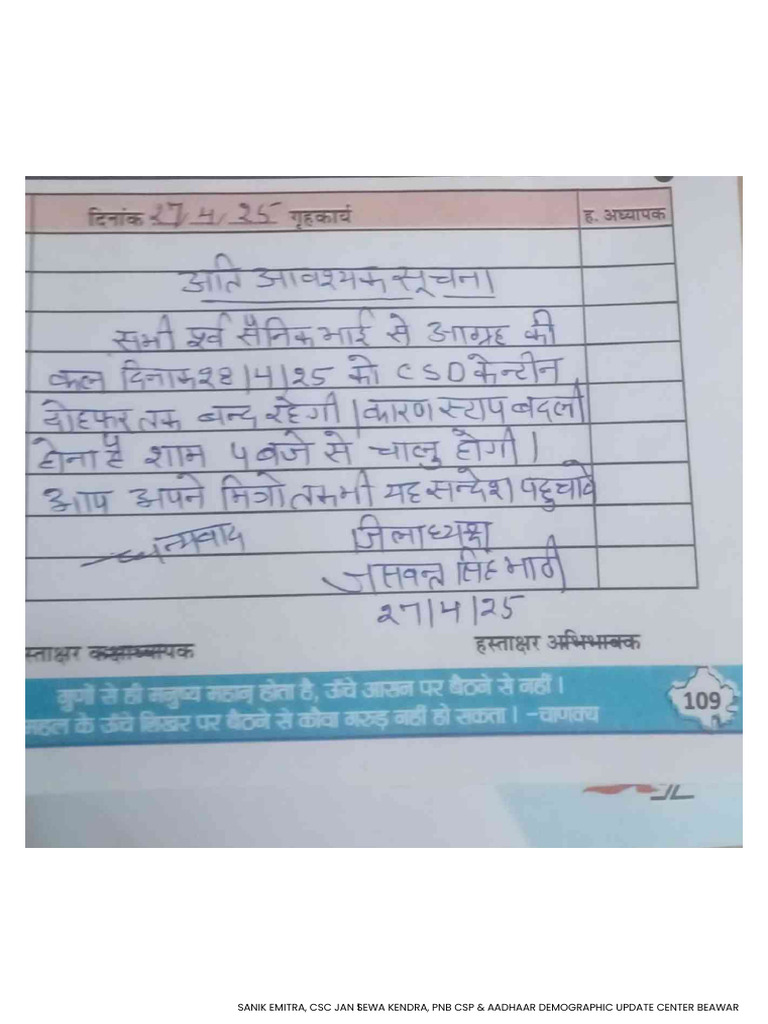 दिनांक 27/4/25 गृहकार्य ह. अध्यापक
अति आवश्यक सूचना।
सभी पूर्व सैनिक भाई से आग्रह की
कल दिनाक 28/4/25 को CSD केन्टीन
दोहफर तक बन्द रहेगी। कारण स्टाप बदली
होना है शाम 4 बजे से चालु होगी।
आप अपने मित्रो तक भी यह सन्देश पहुचावे
धन्यवाद जिलाध्यक्ष
जसवन्त सिंह भाटी
27/4/25
स्ताक्षर कक्षाध्यापक हस्ताक्षर अभिभावक
गुणों से ही मनुष्य महान् होता है, ऊँचे आसन पर बैठने से नहीं।
महल के ऊँचे शिखर पर बैठने से कौवा गरुड़ नहीं हो सकता। -चाणक्य
109
SANIK EMITRA, CSC JAN SEWA KENDRA, PNB CSP & AADHAAR DEMOGRAPHIC UPDATE CENTER BEAWAR